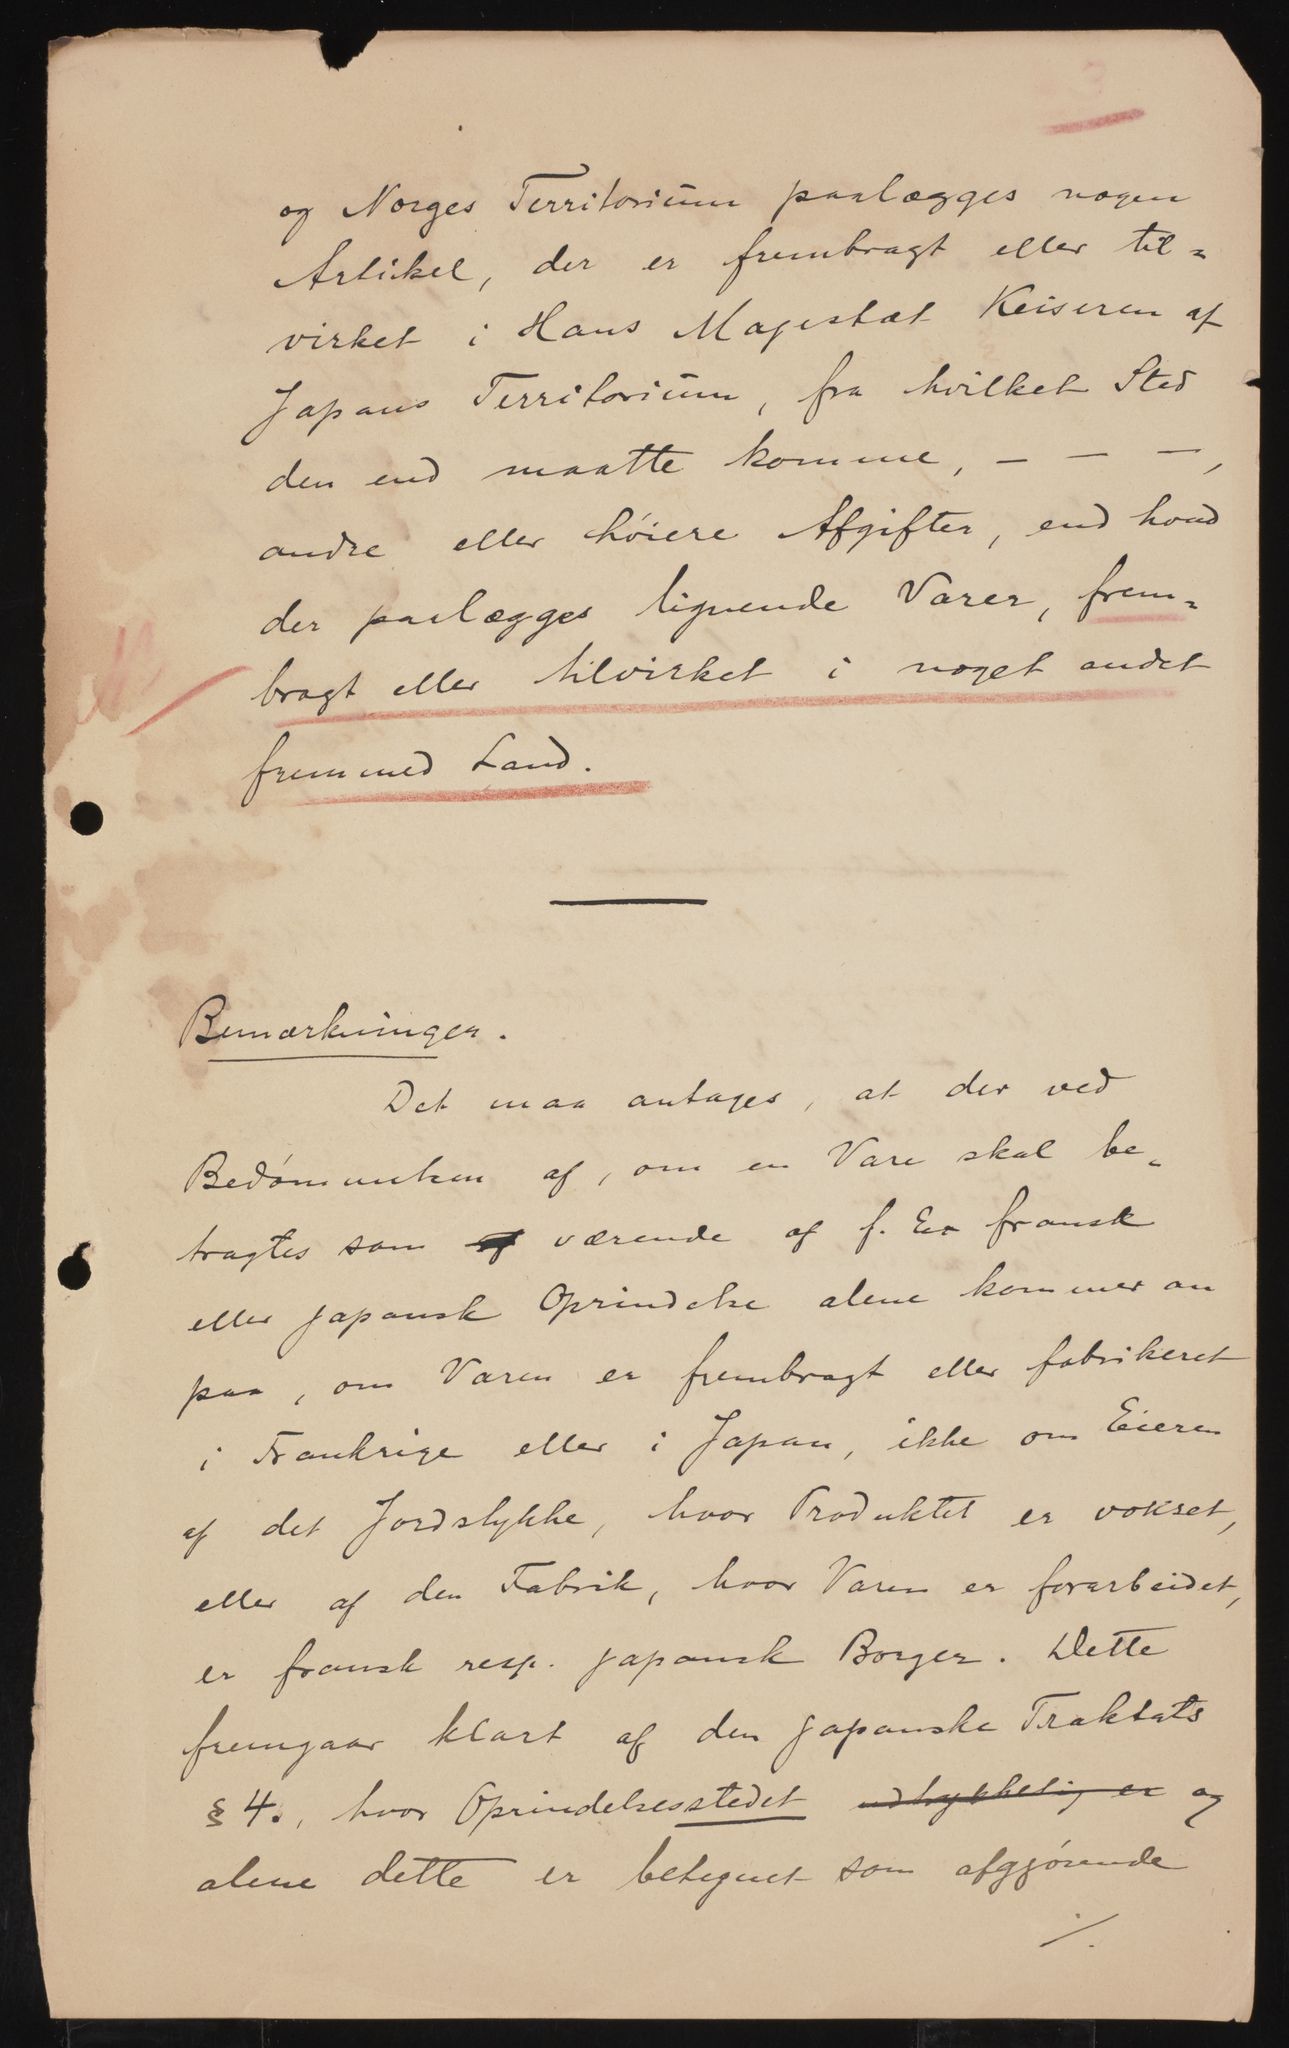 og Norges Territorium paalægges nogen
Artikel, der er frembragt eller til=
virket i Hans Majestæt Keiseren af
Japans Territorium, fra hvilket Sted
den end maatte komme, – – –,
andre eller høiere Afgifter, end hvad
der paalægges lignende Varer, frem=
bragt eller tilvirket i noget andet
fremmed Land.
Bemærkninger.
Det maa antages, at der ved
Bedømmelsen af, om en Vare skal be=
tragtes som af værende af f. Ex fransk
eller japansk Oprindelse alene kommer an
paa, om Varen er frembragt eller fabrikeret
i Frankrige eller i Japan, ikke om Eieren
af det Jordstykke, hvor Produktet er vokset,
eller af den Fabrik, hvor Varen er forarbeidet,
er fransk resp. japansk Borger. Dette
fremgaar klart af den japanske Traktats
§ 4., hvor Oprindelsesstedet udtrykkelig er og
alene dette er betegnet som afgjørende
./.